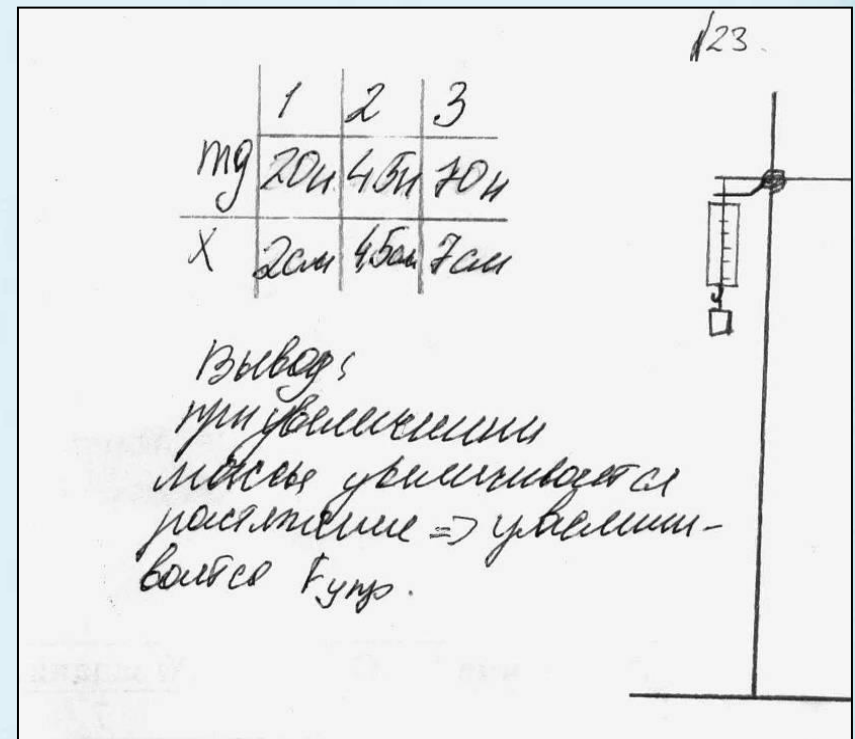 №23.
1 2 3
mg 20н 45н 70н
x 2см 4,5см 7см
Вывод:
при увеличении
массы увеличивается
растяжение => увеличи-
вается Fупр.